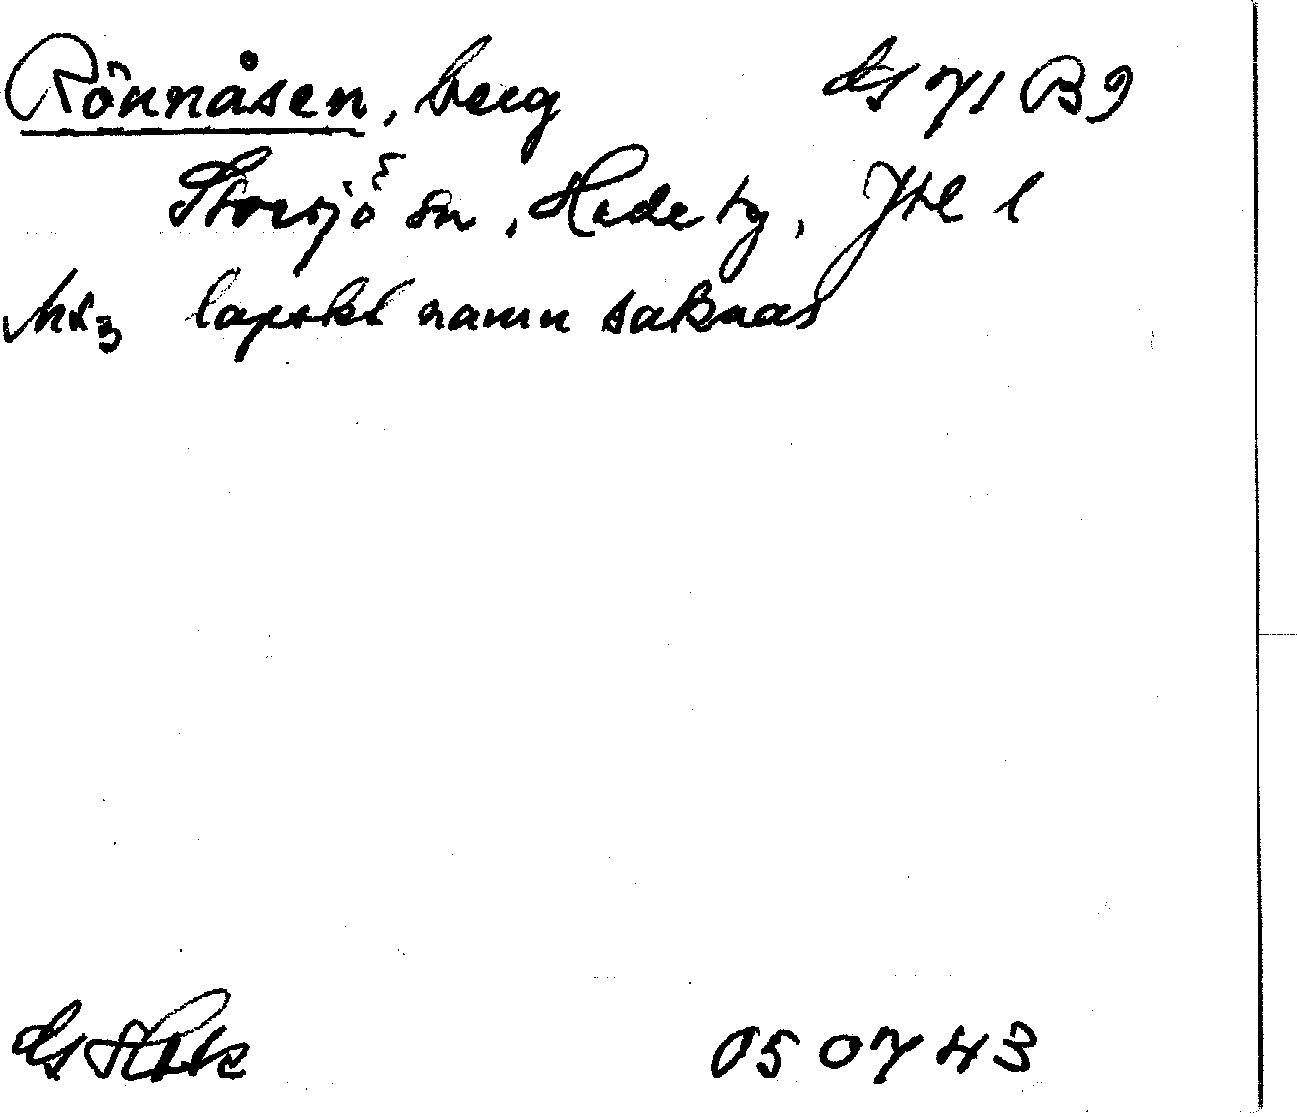 Rönnåsen, berg Gs 71 B 9
Storsjö sn, Hede tg, Jtl l
lapskt namn saknas
050743